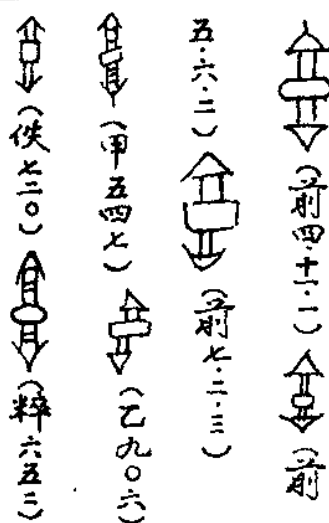 (前四·十一·一) (前
五·六·二) (前七·二·三)
(甲五四七) (乙九〇六)
(佚七二〇) (粹六五二)